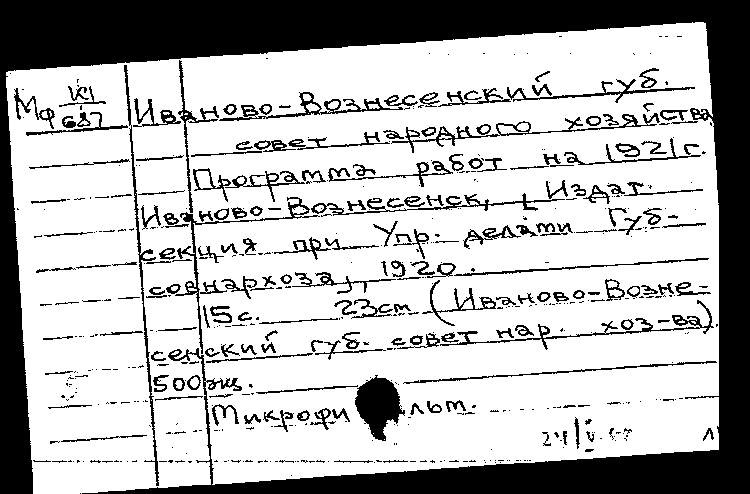 Мф VI Иваново-Вознесенский губ.
687
совет народного хозяйства
Программа работ на 1921г.
Иваново-Вознесенск, [Издат.
секция при Упр. делами Губ-
совнархоза], 1920.
15с. 23см (Иваново-Возне-
сенский губ. совет нар. хоз-ва).
500экз.
Микрофильм.